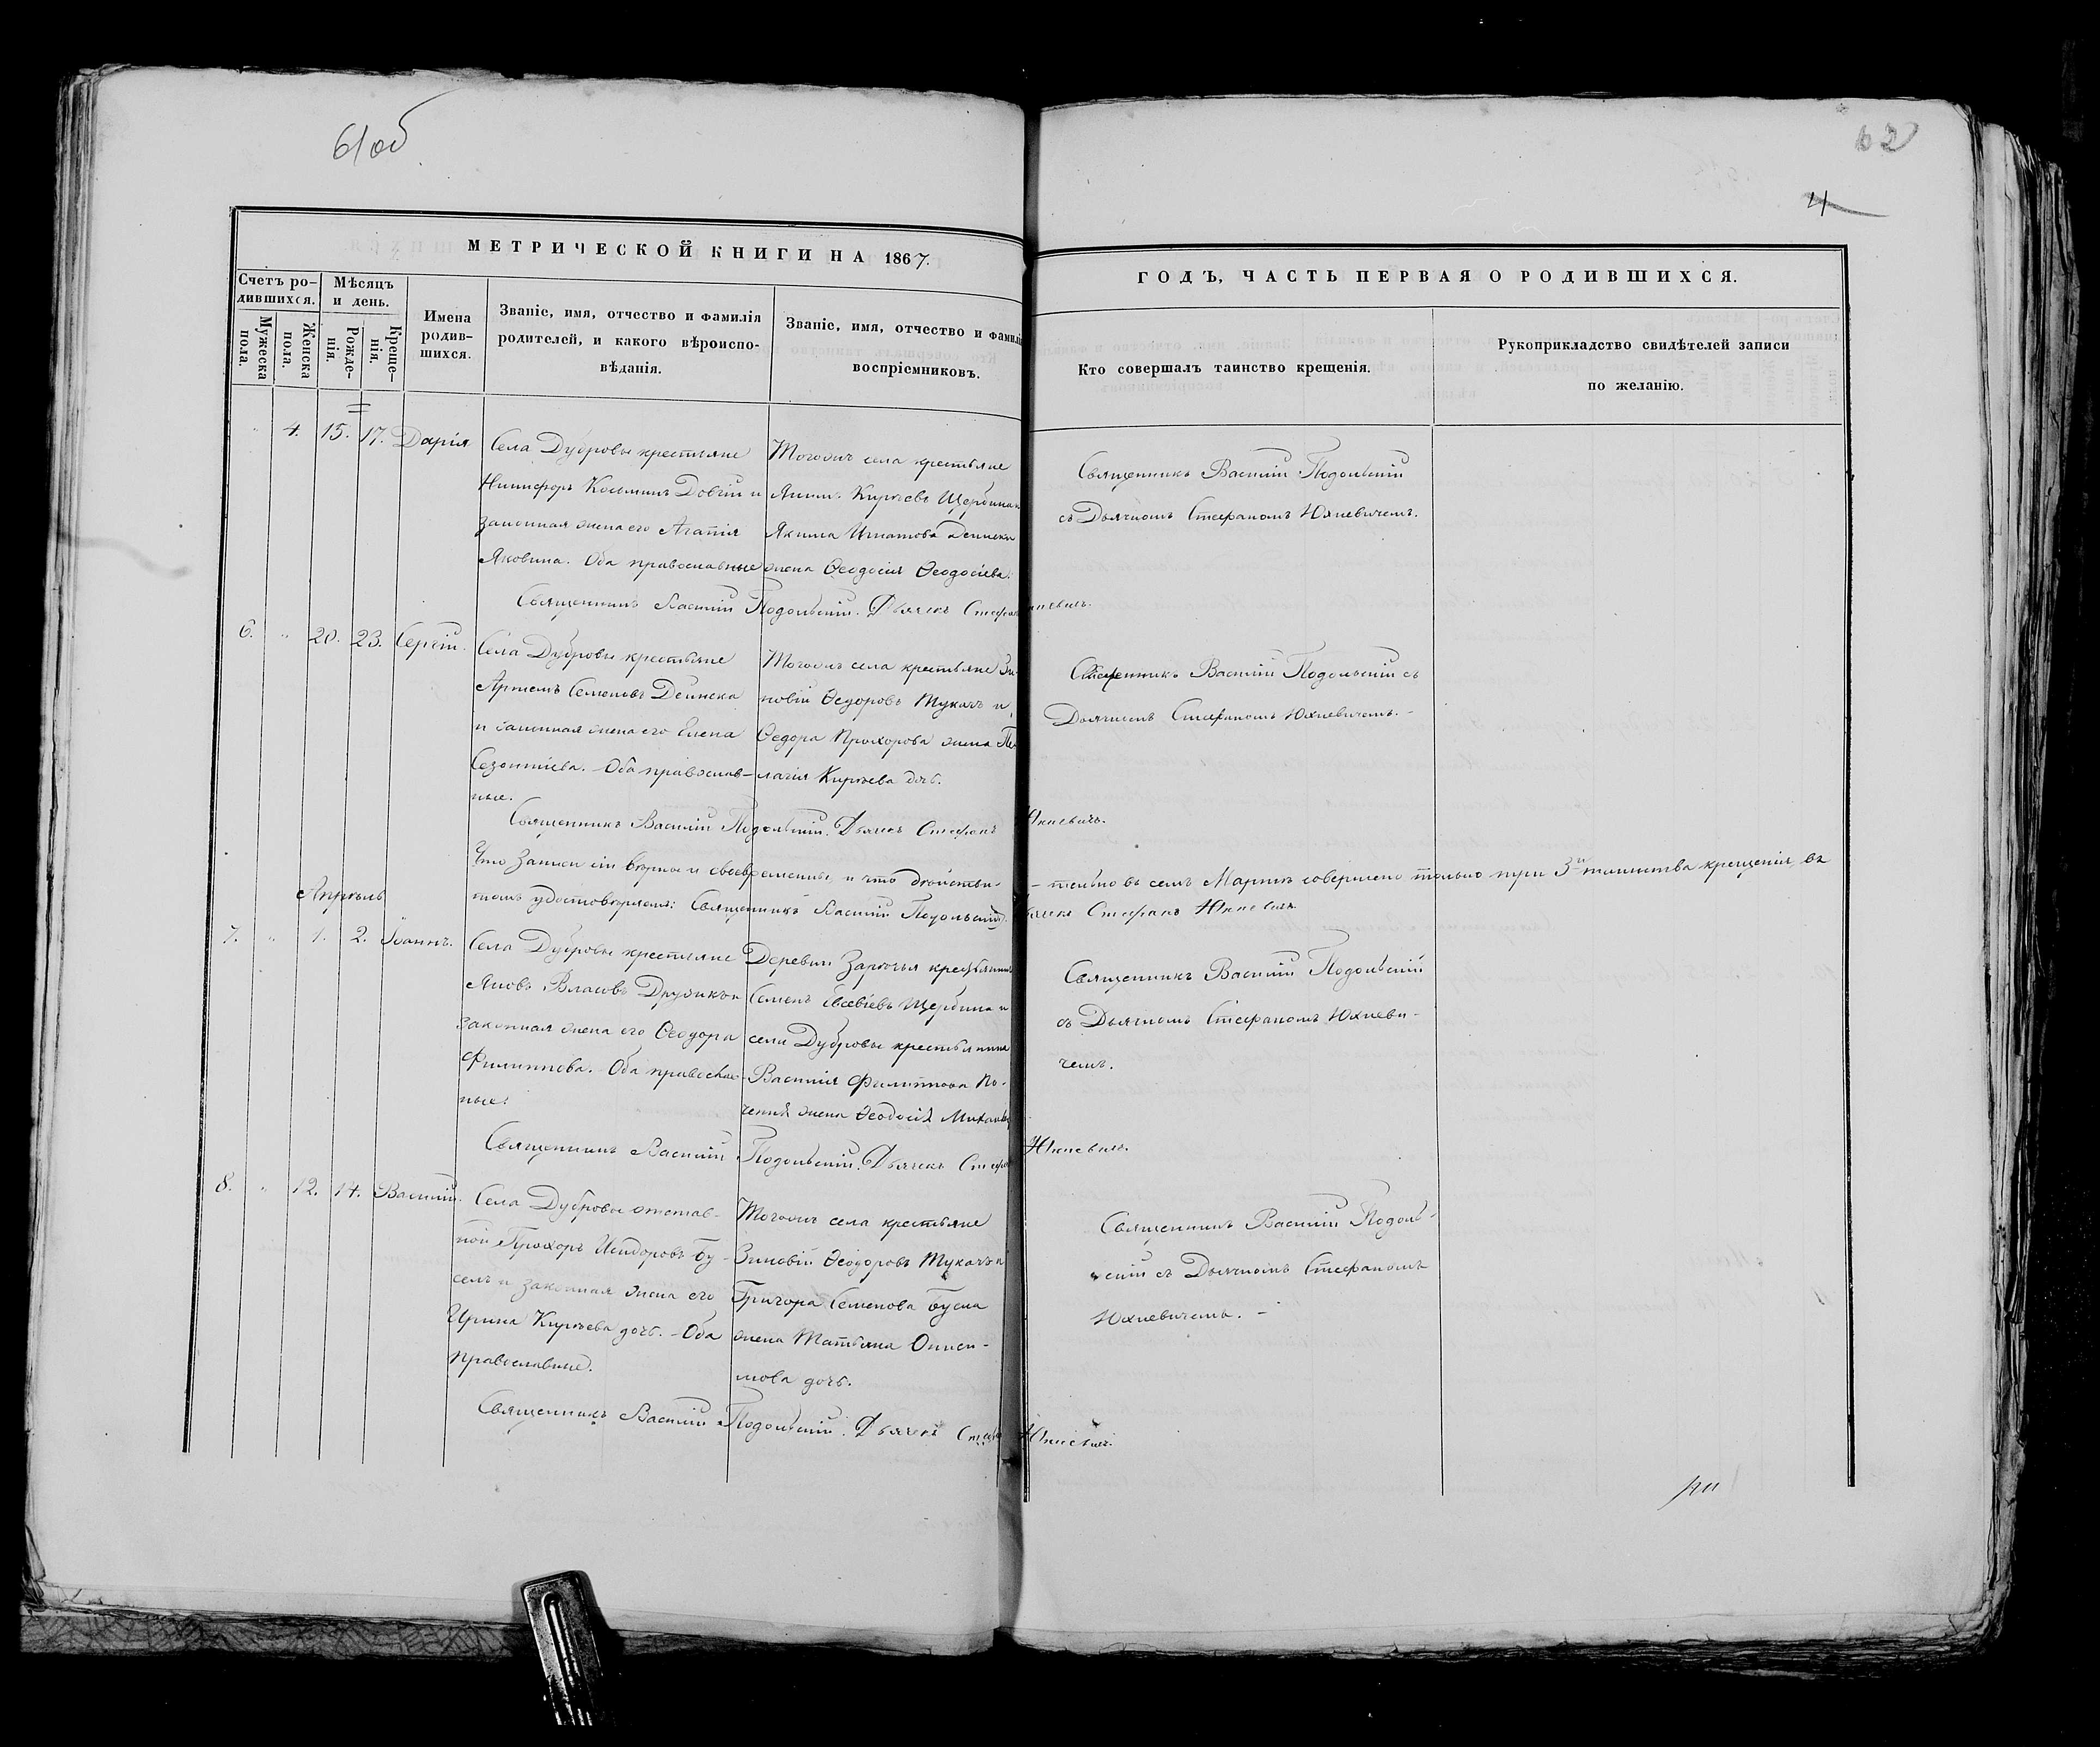 61об
62
4
МЕТРИЧЕСКОЙ КНИГИ НА 1867.
ГОДЪ, ЧАСТЬ ПЕРВАЯ О РОДИВШИХСЯ.
Счетъ ро-
дившихся.
Мужеска пола.
Женска пола.
Мѣсяцъ
и день.
Рожде-
нія.
Креще-
нія.
Имена
родив-
шихся.
Званіе, имя, отчество и фамилія
родителей, и какого вѣроиспо-
вѣданія.
Званіе, имя, отчество и фамилі
воспріемниковъ.
Кто совершалъ таинство крещенія.
Рукоприкладство свидѣтелей записи
по желанію.
" 4. 15. 17. Дарія
Села Дубровы крестьяне
Никифоръ Козьминъ Довгій и
законная жена его Агапія
Яковина. Оба православные
Тогожъ села крестьяне
Якимъ Кирѣевъ Щербина и
Якима Игнатова Деинеки
жена Ѳеодосія Ѳеодосіева.
Священникъ Василій Подольскій
съ Дьячкомъ Стефаномъ Юхневичемъ.
Священникъ Василій Подольскій. Дьячекъ Стефан
6. " 20. 23. Сергій.
Села Дубровы крестьяне
Артемъ Семеновъ Деинека
и законная жена его Елена
Созонтіева. Оба православ-
ные.
Тогожъ села крестьяне Зи-
новій Ѳедоровъ Тукачъ и
Ѳедора Прохорова жена Пе
лагія Кирѣева дочь.
Священникъ Василій Подольскій съ
Дьячкомъ Стефаномъ Юхневичемъ. -
Священникъ Василій Подольскій. Дьячекъ Стефанъ Юхневичъ.
Что записи сіи вѣрны и своевременны, и что дѣйстви-
- тельно въ семъ Мартѣ совершено только три 3и таинства крещенія въ
томъ удостовѣряемъ: Священникъ Василій Подольскій. Дьячекъ Стефанъ Юхневичъ
Апрѣль
7. " 1. 2. Іоаннъ.
Села Дубровы крестьяне
Яковъ Власовъ Друзикъ и
законная жена его Ѳеодора
Филиппова. Оба православ-
ные.
Деревни Заречья крестьянинъ
Семенъ Евсевіевъ Щербина и
села Дубровы крестьянина
Василія Филиппова
жена Ѳеодосія
Священникъ Василій Подольскій
съ Дьячкомъ Стефаномъ Юхневи-
чемъ.
Священникъ Василій Подольскій. Дьячекъ Стефа Юхневичъ.
8. " 12. 14. Василій.
Села Дубровы отстав-
ной Прохоръ Исидоровъ Бу-
селъ и законная жена его
Ирина Кирѣева дочь. - Оба
православные.
Тогожъ села крестьяне
Зиновій Ѳеодоровъ Тукачъ и
Григора Семенова Бусла
жена Татьяна Ониси-
мова дочь.
Священникъ Василій Подоль-
скій съ Дьячкомъ Стефаномъ
Юхневичемъ. -
Священникъ Василій Подольскій. Дьячекъ Стефа Юхневичъ.